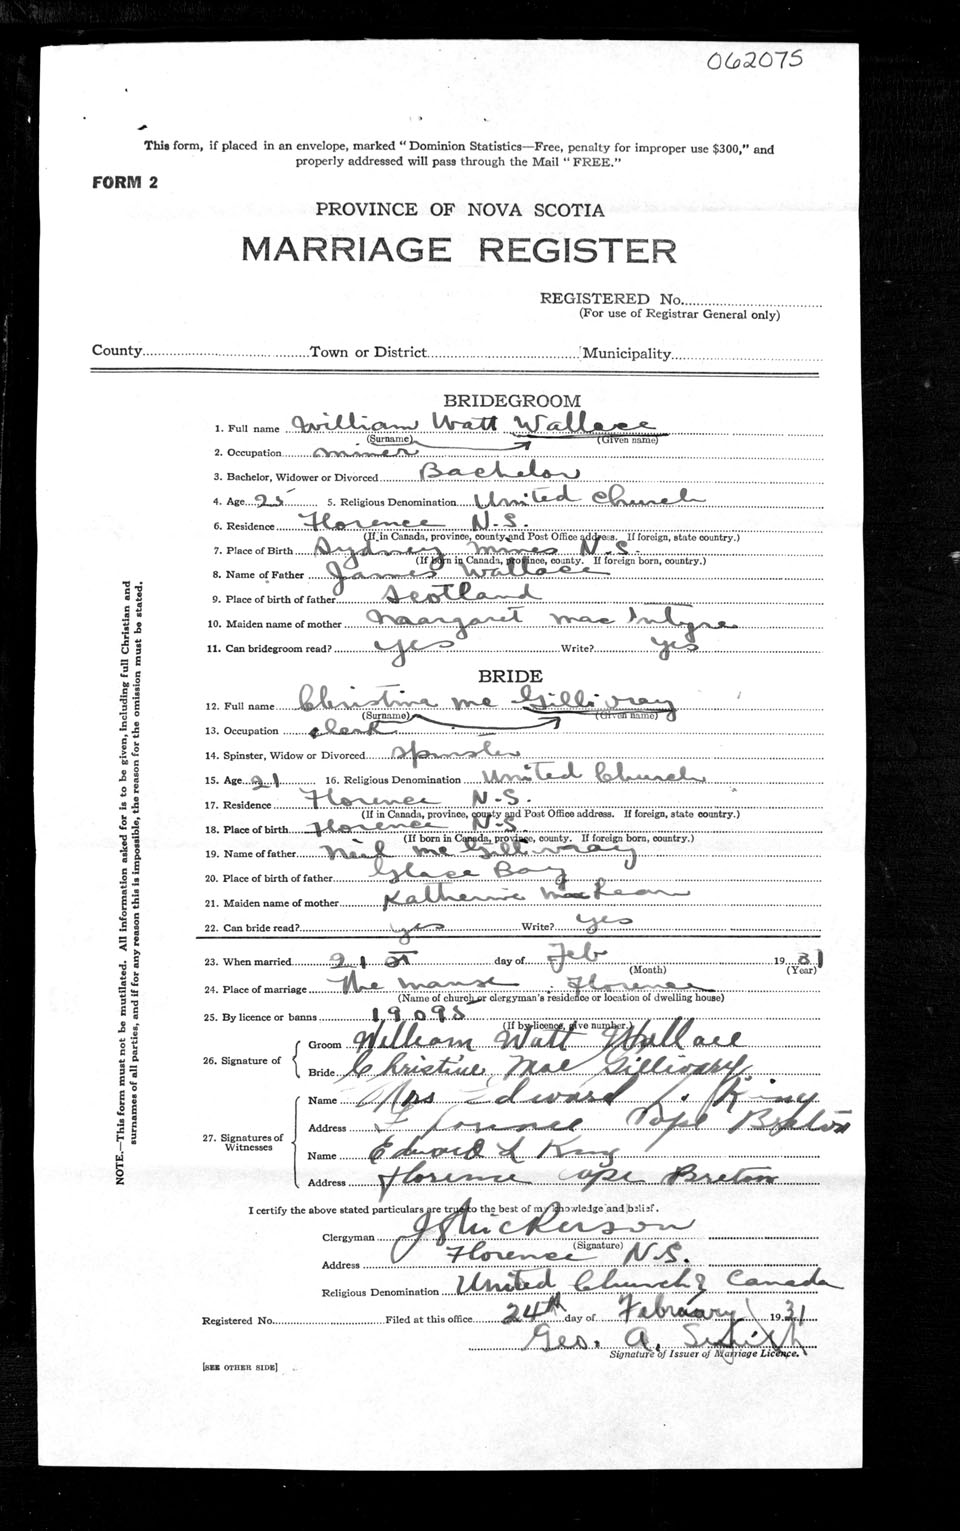 062075
This form, if placed in an envelope, marked "Dominion Statistics—Free, penalty for improper use $300," and
properly addressed will pass through the Mail "FREE."
FORM 2
PROVINCE OF NOVA SCOTIA
MARRIAGE REGISTER
REGISTERED No.
(For use of Registrar General only)
County Town or District Municipality
BRIDEGROOM
1. Full name William Watt Wallace
(Surname) (Given name)
2. Occupation miner
3. Bachelor, Widower or Divorced Bachelor
4. Age 25 5. Religious Denomination United Church
6. Residence Florence N.S.
(If in Canada, province, county and Post Office address. If foreign, state country.)
7. Place of Birth Sydney Mines N.S.
(If born in Canada, province, county. If foreign born, country.)
8. Name of Father James Wallace
9. Place of birth of father Scotland
10. Maiden name of mother Margaret Mac Intyre
11. Can bridegroom read? yes Write? yes
BRIDE
12. Full name Christina Mc Gillivray
(Surname) (Given name)
13. Occupation clerk
14. Spinster, Widow or Divorced spinster
15. Age 21 16. Religious Denomination United Church
17. Residence Florence N.S.
(If in Canada, province, county and Post Office address. If foreign, state country.)
18. Place of birth Florence N.S.
(If born in Canada, province, county. If foreign born, country.)
19. Name of father Neil Mc Gillivray
20. Place of birth of father Glace Bay
21. Maiden name of mother Katherine MacLean
22. Can bride read? yes Write? yes
23. When married 21st day of Feb 1931
(Month) (Year)
24. Place of marriage The manse Florence
(Name of church or clergyman's residence or location of dwelling house)
25. By licence or banns 19095
(If by licence, give number.)
26. Signature of Groom William Watt Wallace
Bride Christine Mac Gillivary
27. Signatures of Witnesses Name Mrs Edward L. King
Address Florence Cape Breton
Name Edward L King
Address Florence Cape Breton
I certify the above stated particulars are true to the best of my knowledge and belief.
Clergyman
(Signature)
Address Florence N.S.
Religious Denomination United Church of Canada
Registered No. Filed at this office 24th day of February 1931
Geo. A. Smith
Signature of Issuer of Marriage Licence.
[SEE OTHER SIDE]
NOTE.—This form must not be mutilated. All information asked for is to be given, including full Christian and
surnames of all parties, and if for any reason this is impossible, the reason for the omission must be stated.